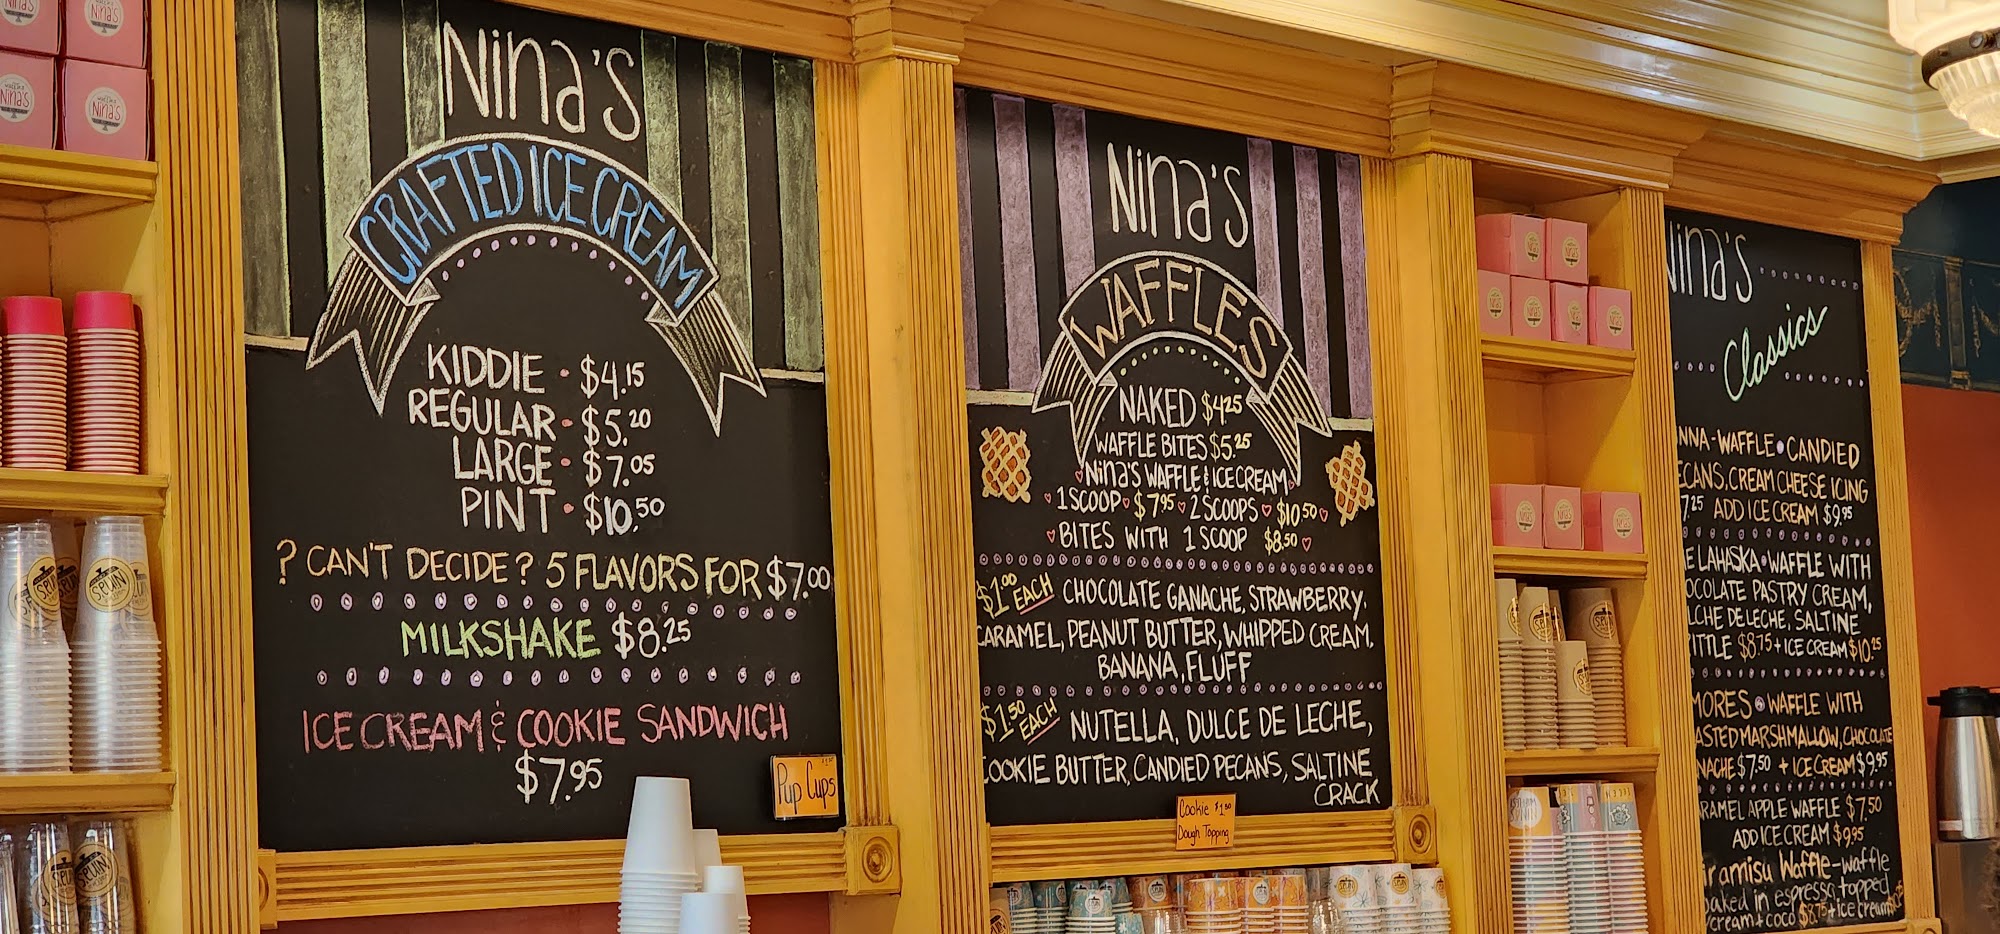 Nina's
CRAFTED ICE CREAM
KIDDIE · $4.15
REGULAR · $5.20
LARGE · $7.05
PINT · $10.50
? CAN'T DECIDE? 5 FLAVORS FOR $7.00
MILKSHAKE $8.25
ICE CREAM & COOKIE SANDWICH
$7.95
Pup Cups
Nina's
WAFFLES
NAKED $4.25
WAFFLE BITES $5.25
Nina's WAFFLE & ICE CREAM
1 SCOOP $7.95 2 SCOOPS $10.50
BITES WITH 1 SCOOP $8.50
$1.00 EACH CHOCOLATE GANACHE, STRAWBERRY,
CARAMEL, PEANUT BUTTER, WHIPPED CREAM.
BANANA, FLUFF
$1.50 EACH NUTELLA, DULCE DE LECHE,
COOKIE BUTTER, CANDIED PECANS, SALTINE
CRACK
Cookie $1.50
Dough Topping
Nina's
Classics
NNA-WAFFLE CANDIED
ECANS, CREAM CHEESE ICING
7.25 ADD ICE CREAM $9.95
E LAHASKA WAFFLE WITH
OCOLATE PASTRY CREAM,
LCHE DE LECHE, SALTINE
ITTLE $8.75 + ICE CREAM $10.25
MORES WAFFLE WITH
ASTED MARSHMALLOW, CHOCOLATE
NACHE $7.50 + ICE CREAM $9.95
RAMEL APPLE WAFFLE $7.50
ADD ICE CREAM $9.95
iramisu Waffle-waffle
oaked in espresso, topped
cream + coco $8.75 + ice cream
Nina's
Nina's
Nina's
Nina's